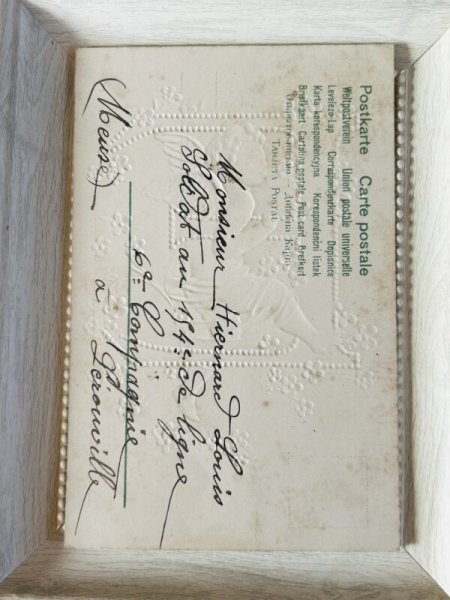 Postkarte Carte postale
Weltpostverein Union postale universelle
Levelező-Lap Correspondenzkarte Dopisnice
Karta korespondencyjna Korespondenční lístek
Briefkaart Cartolina postale Post card Brefkort
Открытое письмо - Дописна Карта
TARJETA POSTAL
Monsieur Hiernard Louis
Soldat au 154e de ligne
6e Compagnie
à Lérouville
(Meuse)